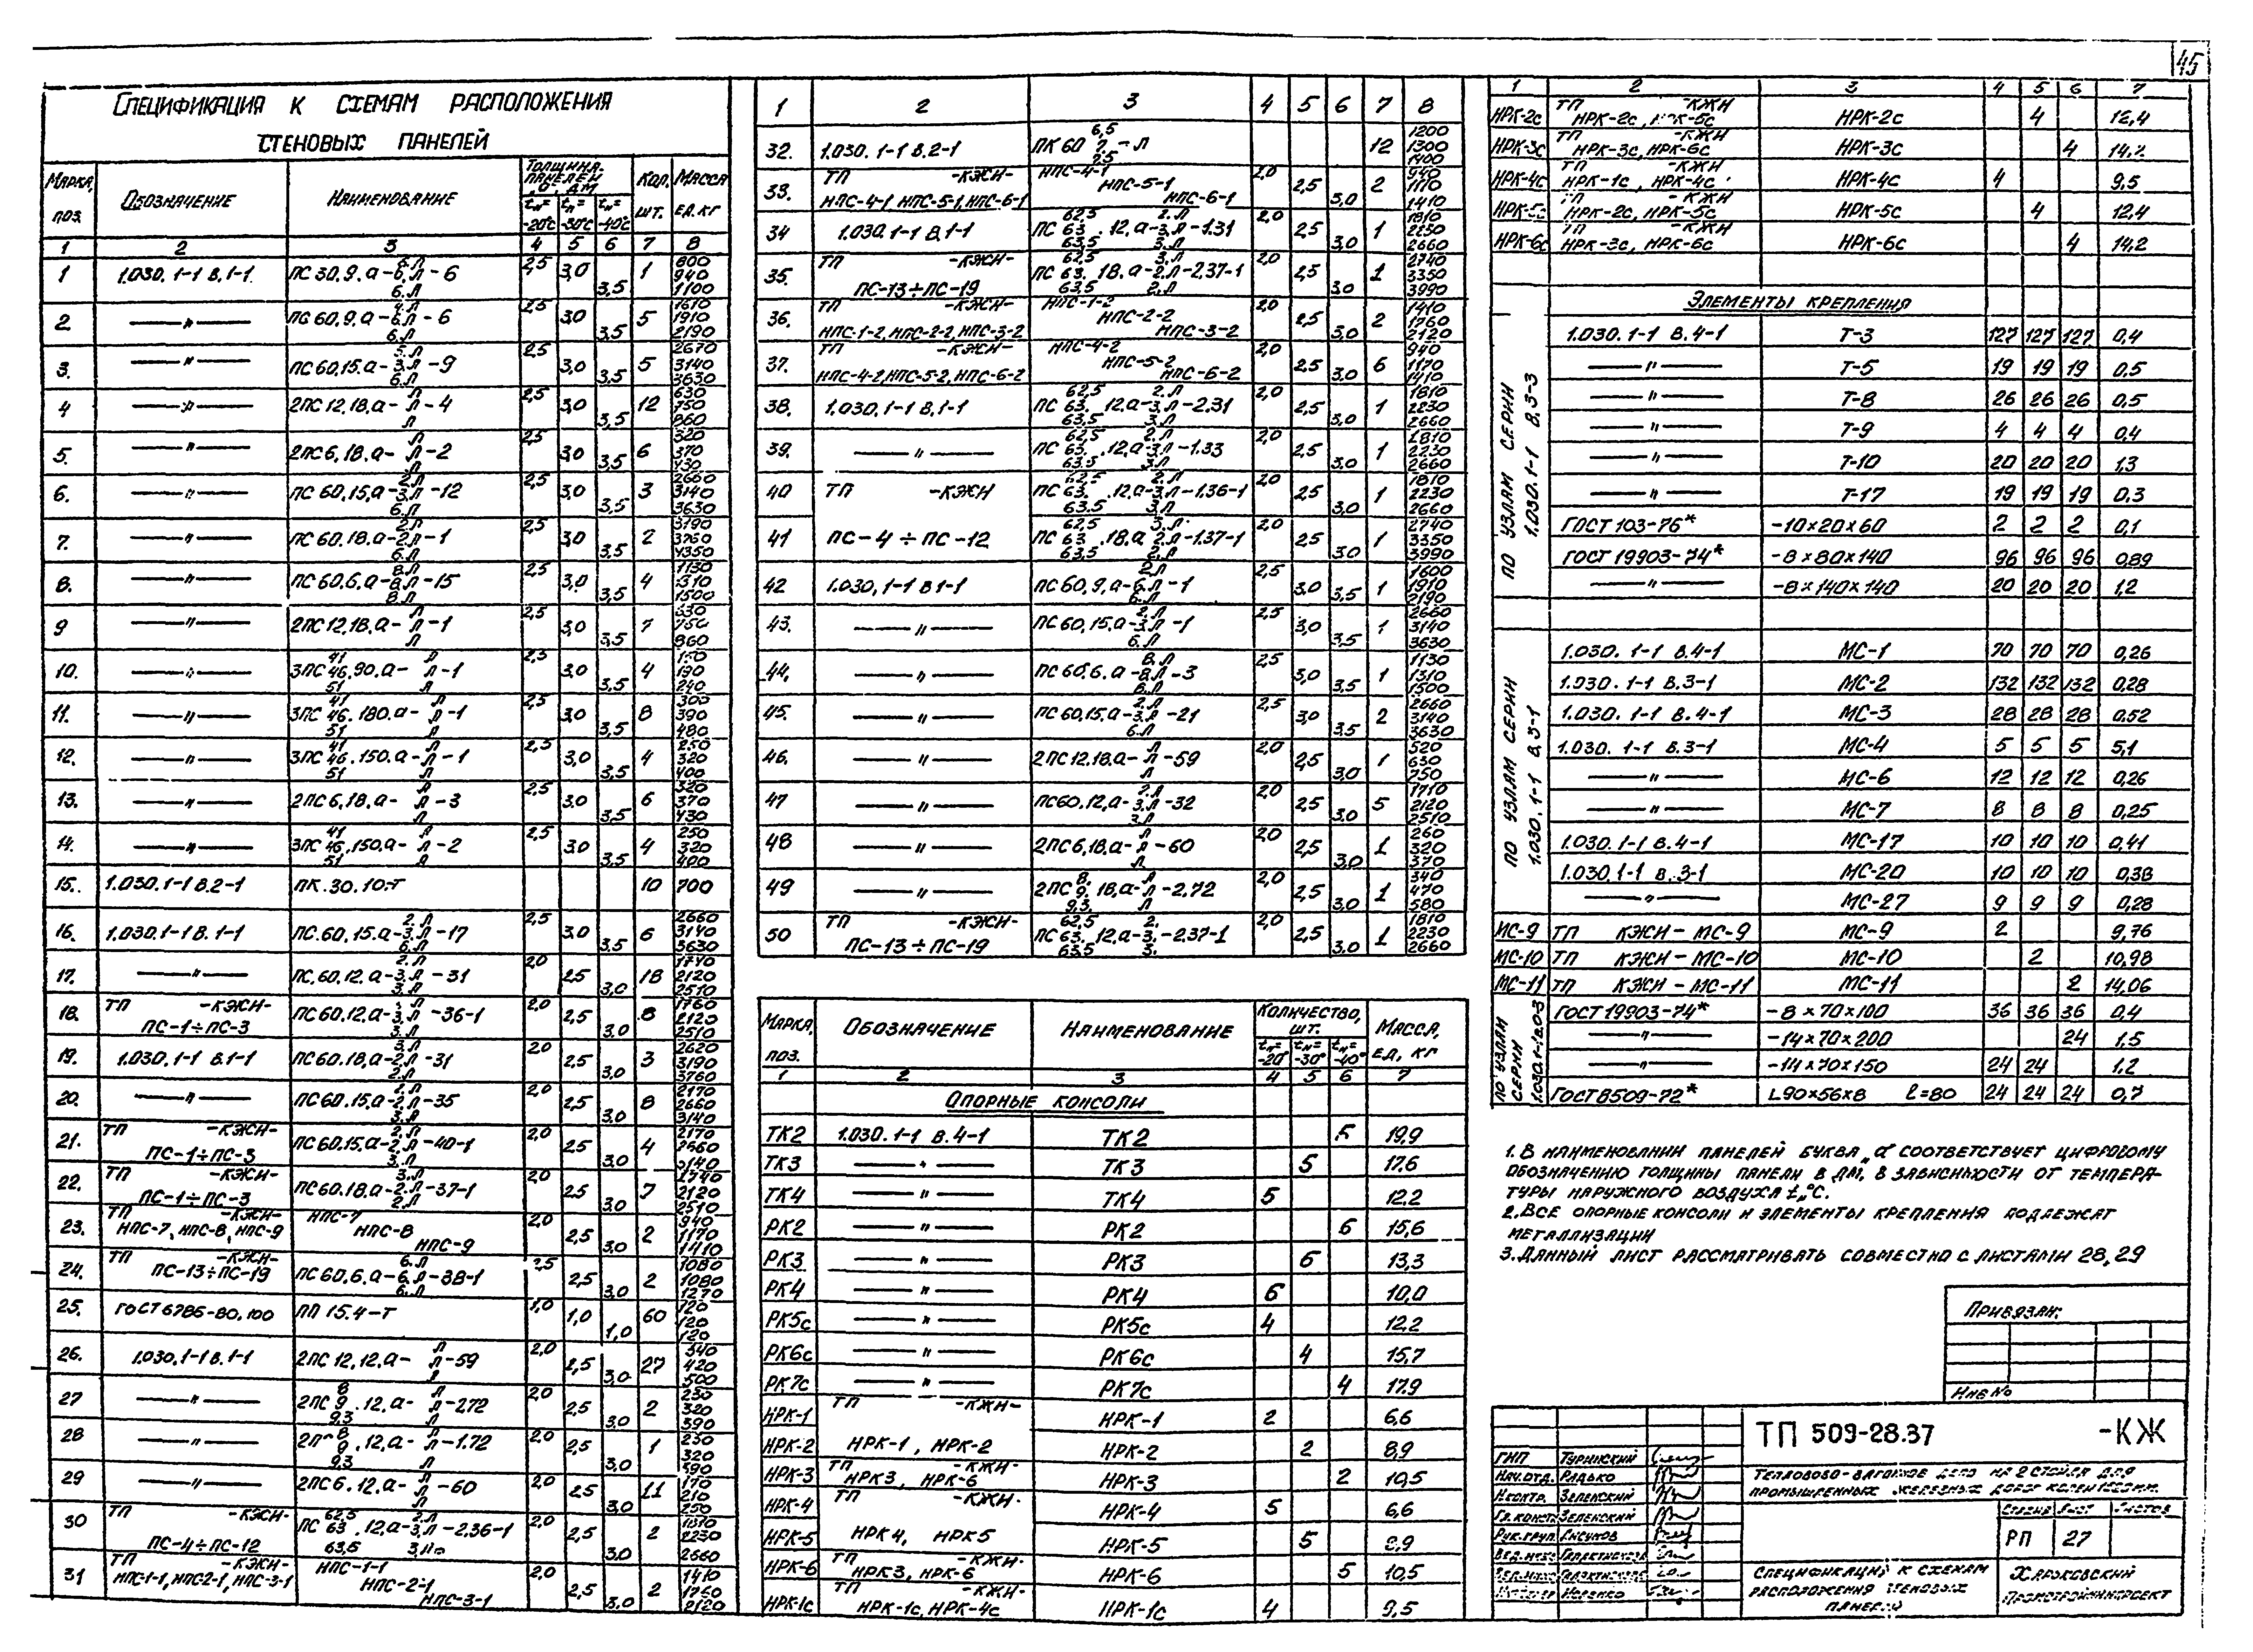 45
СПЕЦИФИКАЦИЯ К СХЕМАМ РАСПОЛОЖЕНИЯ
СТЕНОВЫХ ПАНЕЛЕЙ
МАРКА, ПОЗ. ОБОЗНАЧЕНИЕ НАИМЕНОВАНИЕ ТОЛЩИНА ПАНЕЛЕЙ КОЛ. ШТ. МАССА ЕД. КГ
tн= -20°С tн= -30°С tн= -40°С
1 2 3 4 5 6 7 8
1 1.030.1-1 В.1-1 ПС 30.9.а-6.Л-6 2,5 3,0 3,5 1 800 940 1100
2. —"— ПС 60.9.а-6.Л-6 2,5 3,0 3,5 5 1610 1910 2190
3. —"— ПС 60.15.а-3.Л-9 2,5 3,0 3,5 5 2670 3140 3630
4 —"— 2ПС 12.18.а-Л-4 2,5 3,0 3,5 12 630 750 860
5. —"— 2ПС 6.18.а-Л-2 2,5 3,0 3,5 6 320 370 430
6. —"— ПС 60.15.а-3.Л-12 2,5 3,0 3,5 3 2660 3140 3630
7. —"— ПС 60.18.а-2.Л-1 2,5 3,0 3,5 2 3190 3760 4350
8. —"— ПС 60.6.а-8.Л-15 2,5 3,0 3,5 4 1130 1310 1500
9 —"— 2ПС 12.18.а-Л-1 2,5 3,0 3,5 7 630 750 860
10. —"— 3ПС 41 46 51 .90.а-Л-1 2,5 3,0 3,5 4 150 190 240
11. —"— 3ПС 41 46 51 .180.а-Л-1 2,5 3,0 3,5 8 300 390 480
12. —"— 3ПС 41 46 51 .150.а-Л-1 2,5 3,0 3,5 4 250 320 400
13. —"— 2ПС 6.18.а-Л-3 2,5 3,0 3,5 6 320 370 430
14. —"— 3ПС 41 46 51 .150.а-Л-2 2,5 3,0 3,5 4 250 320 400
15. 1.030.1-1 В.2-1 ПК.30.10-Т 10 700
16. 1.030.1-1 В.1-1 ПС.60.15.а-3.Л-17 2,5 3,0 3,5 6 2660 3140 3630
17. —"— ПС.60.12.а-3.Л-31 2,0 2,5 3,0 18 1740 2120 2510
18. ТП -КЖИ- ПС-1÷ПС-3 ПС 60.12.а-3.Л-36-1 2,0 2,5 3,0 8 1760 2120 2510
19. 1.030.1-1 В.1-1 ПС 60.18.а-2.Л-31 2,0 2,5 3,0 3 2620 3190 3760
20. —"— ПС 60.15.а-2.Л-35 2,0 2,5 3,0 8 2170 2660 3140
21. ТП -КЖИ- ПС-1÷ПС-3 ПС 60.15.а-2.Л-40-1 2,0 2,5 3,0 4 2170 2660 3140
22. ТП -КЖИ- ПС-1÷ПС-3 ПС 60.18.а-2.Л-37-1 2,0 2,5 3,0 7 1740 2120 2510
23. ТП -КЖИ- НПС-7, НПС-8, НПС-9 НПС-7 НПС-8 НПС-9 2,0 2,5 3,0 2 940 1170 1410
24. ТП -КЖИ- ПС-13÷ПС-19 ПС 60.6.а-6.Л-38-1 2,5 2,5 3,0 2 1080 1080 1270
25. ГОСТ 6785-80.100 ПП 15.4-Т 1,0 1,0 1,0 60 120 120 120
26. 1.030.1-1 В.1-1 2ПС 12.12.а-Л-59 2,0 2,5 3,0 27 340 420 500
27 —"— 2ПС 8 9 9.3 .12.а-Л-272 2,0 2,5 3,0 2 250 320 390
28 —"— 8 9 9.3 .12.а-Л-1.72 2,0 2,5 3,0 1 250 320 390
29 —"— 2ПС 6.12.а-Л-60 2,0 2,5 3,0 11 170 210 250
30 ТП -КЖИ- ПС-4÷ПС-12 ПС 62,5 63 63,5 .12.а-3.Л-2.36-1 2,0 2,5 3,0 2 1810 2230 2660
31 ТП -КЖИ- НПС-1-1, НПС-2-1, НПС-3-1 НПС-1-1 НПС-2-1 НПС-3-1 2,0 2,5 3,0 2 1410 1760 2120
1 2 3 4 5 6 7 8
32. 1.030.1-1 В.2-1 ПК 60 6,5 7. 7,5 -Л 12 1200 1300 1400
33. ТП -КЖИ- НПС-4-1, НПС-5-1, НПС-6-1 НПС-4-1 НПС-5-1 НПС-6-1 2,0 2,5 3,0 2 940 1170 1410
34 1.030.1-1 В.1-1 ПС 62,5 63 63,5 .12.а-3.Л-1.31 2,0 2,5 3,0 1 1810 2230 2660
35. ТП -КЖИ- ПС-13÷ПС-19 ПС 62,5 63. 63,5 18.а-2.Л-2.37-1 2,0 2,5 3,0 1 2740 3350 3990
36. ТП -КЖИ- НПС-1-2, НПС-2-2, НПС-3-2 НПС-1-2 НПС-2-2 НПС-3-2 2,0 2,5 3,0 2 1410 1760 2120
37. ТП -КЖИ- НПС-4-2, НПС-5-2, НПС-6-2 НПС-4-2 НПС-5-2 НПС-6-2 2,0 2,5 3,0 6 940 1170 1410
38. 1.030.1-1 В.1-1 ПС 62,5 63. 63,5 12.а-3.Л-2.31 2,0 2,5 3,0 1 1810 2230 2660
39. —"— ПС 62,5 63. 63,5 .12.а-3.Л-1.33 2,0 2,5 3,0 1 1810 2230 2660
40 ТП -КЖИ ПС 62,5 63. 63,5 .12.а-3.Л-1.36-1 2,0 2,5 3,0 1 1810 2230 2660
41 ПС-4÷ПС-12 ПС 62,5 63 63,5 .18.а 2.Л-1.37-1 2,0 2,5 3,0 1 2740 3350 3990
42 1.030.1-1 В 1-1 ПС 60.9.а-6.Л-1 2,5 3,0 3,5 1 1600 1910 2190
43. —"— ПС 60.15.а-3.Л-1 2,5 3,0 3,5 1 2660 3140 3630
44. —"— ПС 60.6.а-8.Л-3 2,5 3,0 3,5 1 1130 1310 1500
45. —"— ПС 60.15.а-3.Л-21 2,5 3,0 3,5 2 2660 3140 3630
46. —"— 2ПС 12.18.а-Л-59 2,0 2,5 3,0 1 520 630 750
47 —"— ПС 60.12.а-3.Л-32 2,0 2,5 3,0 5 1710 2120 2510
48 —"— 2ПС 6.18.а-Л-60 2,0 2,5 3,0 1 260 320 370
49 —"— 2ПС 8. 9. 9.3. 18.а-Л-2.72 2,0 2,5 3,0 1 340 470 580
50 ТП -КЖИ- ПС-13÷ПС-19 ПС 62,5 63. 63,5 12.а-3.-2.37-1 2,0 2,5 3,0 1 1810 2230 2660
МАРКА, ПОЗ. ОБОЗНАЧЕНИЕ НАИМЕНОВАНИЕ КОЛИЧЕСТВО, ШТ. МАССА, ЕД. КГ
tн= -20° tн= -30° tн= -40°
1 2 3 4 5 6 7
ОПОРНЫЕ КОНСОЛИ
ТК2 1.030.1-1 В.4-1 ТК2 5 19,9
ТК3 —"— ТК3 5 17,6
ТК4 —"— ТК4 5 12,2
РК2 —"— РК2 6 15,6
РК3 —"— РК3 6 13,3
РК4 —"— РК4 6 10,0
РК5с —"— РК5с 4 12,2
РК6с —"— РК6с 4 15,7
РК7с —"— РК7с 4 17,9
НРК-1 ТП -КЖИ- НРК-1 2 6,6
НРК-2 НРК-1, НРК-2 НРК-2 2 8,9
НРК-3 ТП -КЖИ- НРК3, НРК-6 НРК-3 2 10,5
НРК-4 ТП -КЖИ- НРК-4 5 6,6
НРК-5 НРК4, НРК5 НРК-5 5 8,9
НРК-6 ТП -КЖИ- НРК3, НРК-6 НРК-6 5 10,5
НРК-1с ТП -КЖИ- НРК-1с, НРК-4с НРК-1с 4 9,5
1 2 3 4 5 6 7
НРК-2с ТП -КЖИ НРК-2с, НРК-5с НРК-2с 4 12,4
НРК-3с ТП -КЖИ НРК-3с, НРК-6с НРК-3с 4 14,2
НРК-4с ТП -КЖИ НРК-1с, НРК-4с НРК-4с 4 9,5
НРК-5с ТП -КЖИ НРК-2с, НРК-5с НРК-5с 4 12,4
НРК-6с ТП -КЖИ НРК-3с, НРК-6с НРК-6с 4 14,2
ЭЛЕМЕНТЫ КРЕПЛЕНИЯ
ПО УЗЛАМ СЕРИИ 1.030.1-1 В.3-3
1.030.1-1 В.4-1 Т-3 127 127 127 0,4
—"— Т-5 19 19 19 0,5
—"— Т-8 26 26 26 0,5
—"— Т-9 4 4 4 0,4
—"— Т-10 20 20 20 1,3
—"— Т-17 19 19 19 0,3
ГОСТ 103-76* -10×20×60 2 2 2 0,1
ГОСТ 19903-74* -8×80×140 96 96 96 0,89
—"— -8×140×140 20 20 20 1,2
ПО УЗЛАМ СЕРИИ 1.030.1-1 В.3-1
1.030.1-1 В.4-1 МС-1 70 70 70 0,26
1.030.1-1 В.3-1 МС-2 132 132 132 0,28
1.030.1-1 В.4-1 МС-3 28 28 28 0,52
1.030.1-1 В.3-1 МС-4 5 5 5 5,1
—"— МС-6 12 12 12 0,26
—"— МС-7 8 8 8 0,25
1.030.1-1 В.4-1 МС-17 10 10 10 0,41
1.030.1-1 В.3-1 МС-20 10 10 10 0,38
—"— МС-27 9 9 9 0,28
МС-9 ТП КЖИ-МС-9 МС-9 2 9,76
МС-10 ТП КЖИ-МС-10 МС-10 2 10,98
МС-11 ТП КЖИ-МС-11 МС-11 2 14,06
ПО УЗЛАМ СЕРИИ
ГОСТ 19903-74* -8×70×100 36 36 36 0,4
—"— -14×70×200 24 1,5
—"— -14×70×150 24 24 1,2
ГОСТ 8509-72* L90×56×8 ℓ=80 24 24 24 0,7
1. В НАИМЕНОВАНИИ ПАНЕЛЕЙ БУКВА „а" СООТВЕТСТВУЕТ ЦИФРОВОМУ
ОБОЗНАЧЕНИЮ ТОЛЩИНЫ ПАНЕЛИ В ДМ, В ЗАВИСИМОСТИ ОТ ТЕМПЕРА-
ТУРЫ НАРУЖНОГО ВОЗДУХА tн°С.
2. ВСЕ ОПОРНЫЕ КОНСОЛИ И ЭЛЕМЕНТЫ КРЕПЛЕНИЯ ПОДЛЕЖАТ
МЕТАЛЛИЗАЦИИ
3. ДАННЫЙ ЛИСТ РАССМАТРИВАТЬ СОВМЕСТНО С ЛИСТАМИ 28,29
ПРИВЯЗАН:
ИНВ №
ТП 509-28.37 -КЖ
ГИП ТУРИНСКИЙ
НАЧ.ОТД. РАДЬКО
Н.КОНТР. ЗЕЛЕНСКИЙ
ГЛ.КОНСТ ЗЕЛЕНСКИЙ
РУК.ГРУП.
ТЕПЛОВОЗО-ВАГОННОЕ ДЕПО НА 2 СТОЙЛА ДЛЯ
ПРОМЫШЛЕННЫХ ЖЕЛЕЗНЫХ ДОРОГ КОЛЕИ 1520ММ.
СТАДИЯ ЛИСТ ЛИСТОВ
РП 27
СПЕЦИФИКАЦИЯ К СХЕМАМ
РАСПОЛОЖЕНИЯ СТЕНОВЫХ
ПАНЕЛЕЙ
ХАРЬКОВСКИЙ
ПРОМСТРОЙНИИПРОЕКТ